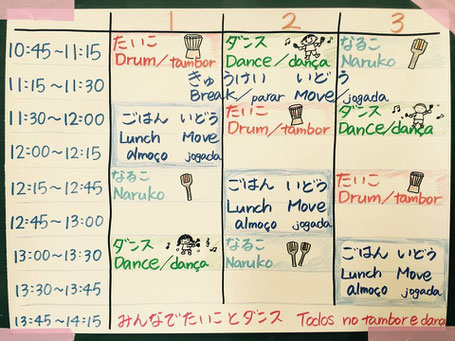 1 2 3
10:45~11:15
たいこ
Drum/tambor
ダンス
Dance/dança
なるこ
Naruko
11:15~11:30
きゅうけい いどう
Break/parar Move/jogada
11:30~12:00
ごはん いどう
Lunch Move
almoço jogada
たいこ
Drum/tambor
ダンス
Dance/dança
12:00~12:15
12:15~12:45
なるこ
Naruko
ごはん いどう
Lunch Move
almoço jogada
たいこ
Drum/tambor
12:45~13:00
13:00~13:30
ダンス
Dance/dança
なるこ
Naruko
ごはん いどう
Lunch Move
almoço jogada
13:30~13:45
13:45~14:15
みんなでたいことダンス Todos no tambor e